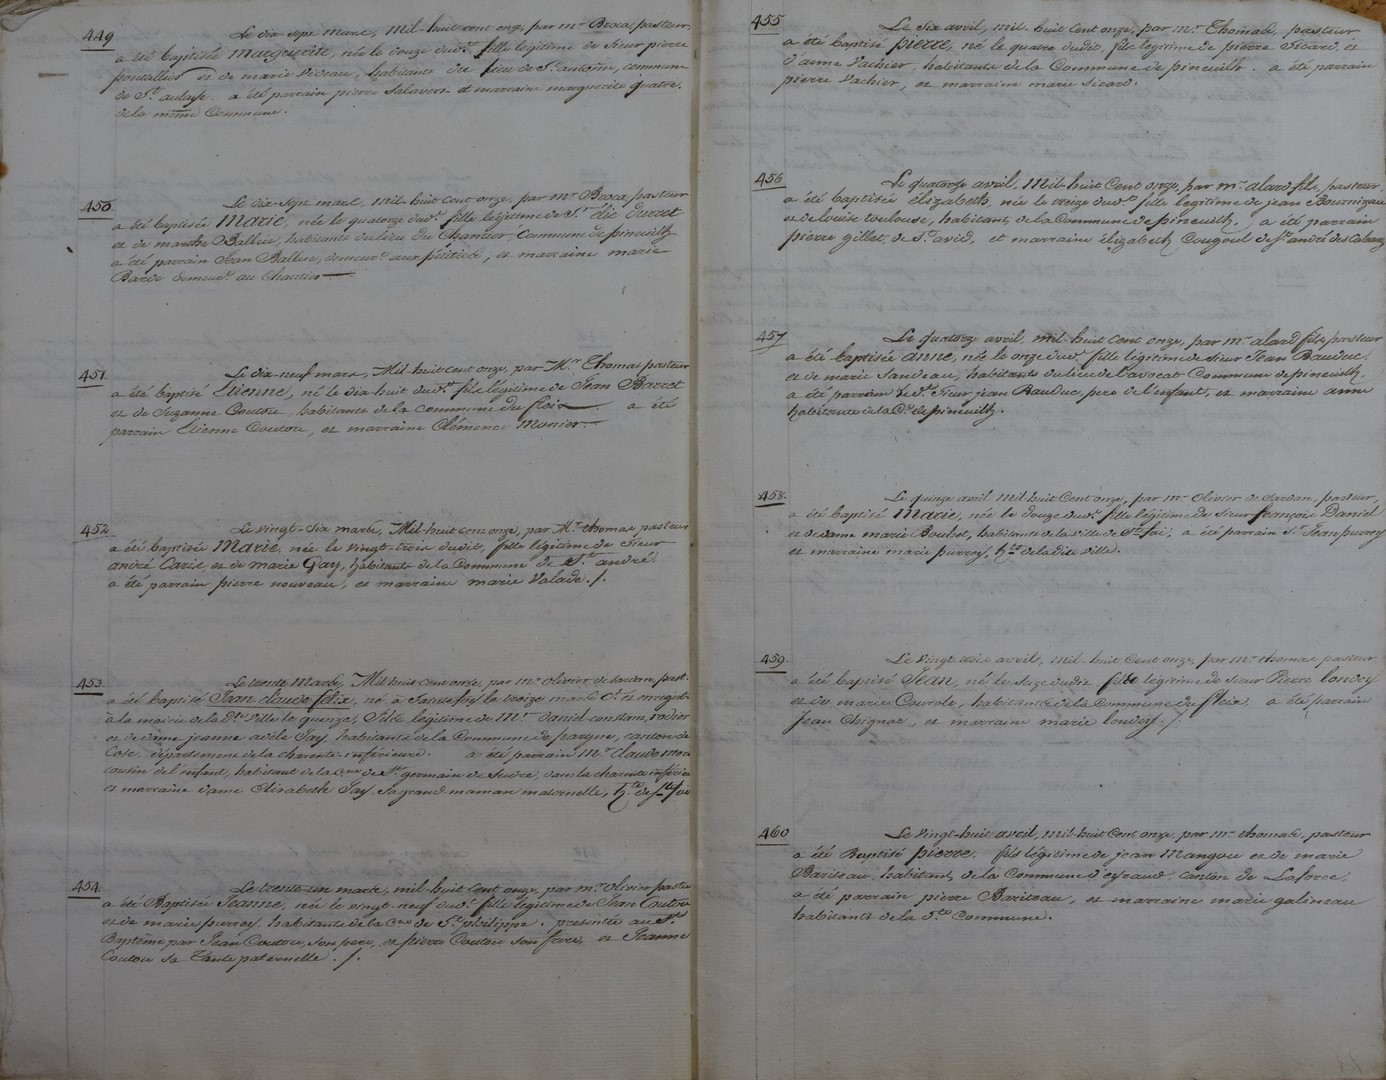 449
Le dix sept mars, Mil-huit cent onze, par mr Broca pasteur,
a été baptisée Marguerite, née le douze dudt. fille légitime de Sieur pierre
pontallier et de marie Videau, habitants du lieu de St. antoine, commune
de St. aulaye. a été parrain pierre Salavert et marraine marguerite quatre.
de la même Commune.
450
Le dix-sept mars, Mil-huit cent onze, par mr Broca pasteur
a été baptisée Marie, née le quatorze dudt. fille légitime de Sr. élie Durret
et de marthe Ballue, habitants du lieu du Chantier, Commune de pineuilh
a été parrain Jean Ballue, demeurt. aux petites, et marraine marie
Barde demeurt. au Chantier
451.
Le dix-neuf mars, Mil-huit cent onze, par Mr Thomas pasteur
a été baptisé Etienne, né le dix-huit dudt. fils légitime de Jean Barret
et de Suzanne Coutou, habitants de la commune du fleix. a été
parrain Etienne Coutou, et marraine Clémence Monier.
452.
Le vingt-six mars, Mil-huit cent onze, par Mr. thomas, pasteur
a été baptisée Marie, née le vingt-trois dudit, fille légitime de Sieur
andré Carié, et de marie Gay, habitants de la Commune de St. andré.
a été parrain pierre nouveau, et marraine marie Valade./.
453.
Le trente Mars, Mil-huit cent onze, par mr. olivier de sardan, past.
a été baptisé Jean claude félix, né à Sainte foi le treize mars Ct. et enregist.
à la mairie de la dte. Ville le quinze, fils légitime de Mr. Daniel constant, rodier
et de dame jeanne adèle Jay, habitants de la Commune de
Coze, département de la charente inférieure. a été parrain Mr claude
cousin de l'enfant, habitant de la Cne de St. germain de Sudre, dans la charente inférieure
et marraine dame Elisabeth Jay, sa grand maman maternelle, hte. de Ste foi
454.
Le trente-un mars, mil-huit cent onze, par mr. olivier paste
a été Baptisée Jeanne, née le vingt-neuf dudt. fille légitime de Jean Coutou
et de marie purrey, habitants de la Cne de St. philippe. présentée au St.
Baptême par Jean Coutou, son père, et pierre Coutou son frère, et Jeanne
Coutou sa Tante paternelle./.
455
Le Six avril, mil-huit cent onze, par mr. Thomas, pasteur
a été baptisé pierre, né le quatre dudit, fils légitime de pierre Sicard, et
d'anne Vachier, habitants de la Commune de pineuilh. a été parrain
pierre Vachier, et marraine marie Sicard.
456
Le quatorze avril, Mil-huit Cent onze, par mr. alard fils, pasteur,
a été baptisée élizabeth, née le treize dudt. fille légitime de jean Bournizeau
et de louise toulouse, habitant, de la Commune de pineuilh, a été parrain
pierre gillet, de St. avid, et marraine élizabeth Cougoul de St. andré des Cabauz
457
Le quatorze avril, mil-huit cent onze, par mr. alard fils pasteur
a été baptisée anne, née le onze dudt. fille légitime de Sieur Jean Bauduc,
et de marie Landeau, habitants du lieu de l'avocat Commune de pineuilh,
a été parrain le St. Sieur jean Bauduc père de l'enfant, et marraine anne
habitants de la Ce. de pineuilh.
458.
Le quinze avril Mil-huit Cent onze, par mr Olivier de Sardan, pasteur,
a été baptisé Marie, née le Douze dudt. fille légitime de Sieur françois Daniel
et de dame marie Bouhet, habitants de la Ville de Ste. foi, a été parrain Sr. Jean purrey
et marraine marie purrey, hts de la dite ville.
459.
Le Vingt-trois avril, mil-huit Cent onze, par mr. thomas pasteur
a été baptisé Jean, né le Seize dudit fils légitime de Sieur Pierre loudey
et de marie Couvole, habitants de la Commune du fleix. a été parrain
Jean Chignac, et marraine marie loudey./.
460
Le Vingt-huit avril, mil-huit Cent onze, par mr thomas, pasteur
a été Baptisé pierre, fils légitime de jean Mangou et de marie
Bariteau, habitant, de la Commune d'eyraud, canton de Laforce,
a été parrain pierre Bariteau, et marraine marie galineau
habitants de la Ste Commune.